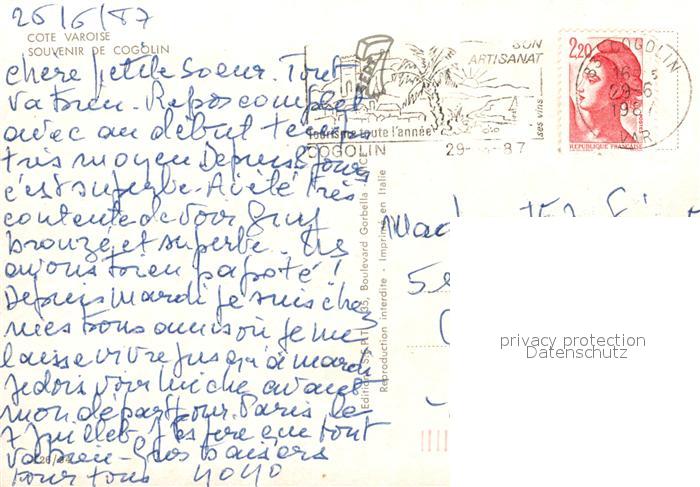 26/6/87
COTE VAROISE
SOUVENIR DE COGOLIN
chère petite soeur. Tout
va bien. Repos complet
avec au début temps
très moyen Depuis 8 jours
c'est superbe. Ai été très
contente de voir Guy
bronzé et superbe. Us
avions bien papoté !
Depuis mardi je suis chez
mes bons amis où je me
laisse vivre jusqu'à mardi
Je dois voir miche avant
mon départ pour Paris le
7 juillet. J'espère que tout
va bien - Gros baisers
pour tous YOYO
26/
SON
ARTISANAT
ses vins
Tourisme toute l'année
COGOLIN
29- -87
2,20
REPUBLIQUE FRANÇAISE
COGOLIN
16
29-6
1987
VAR
Editions S.E.P.T. 35, Boulevard Gorbella
Reproduction interdite - Imprimé en Italie
Mad
5
privacy protection
Datenschutz